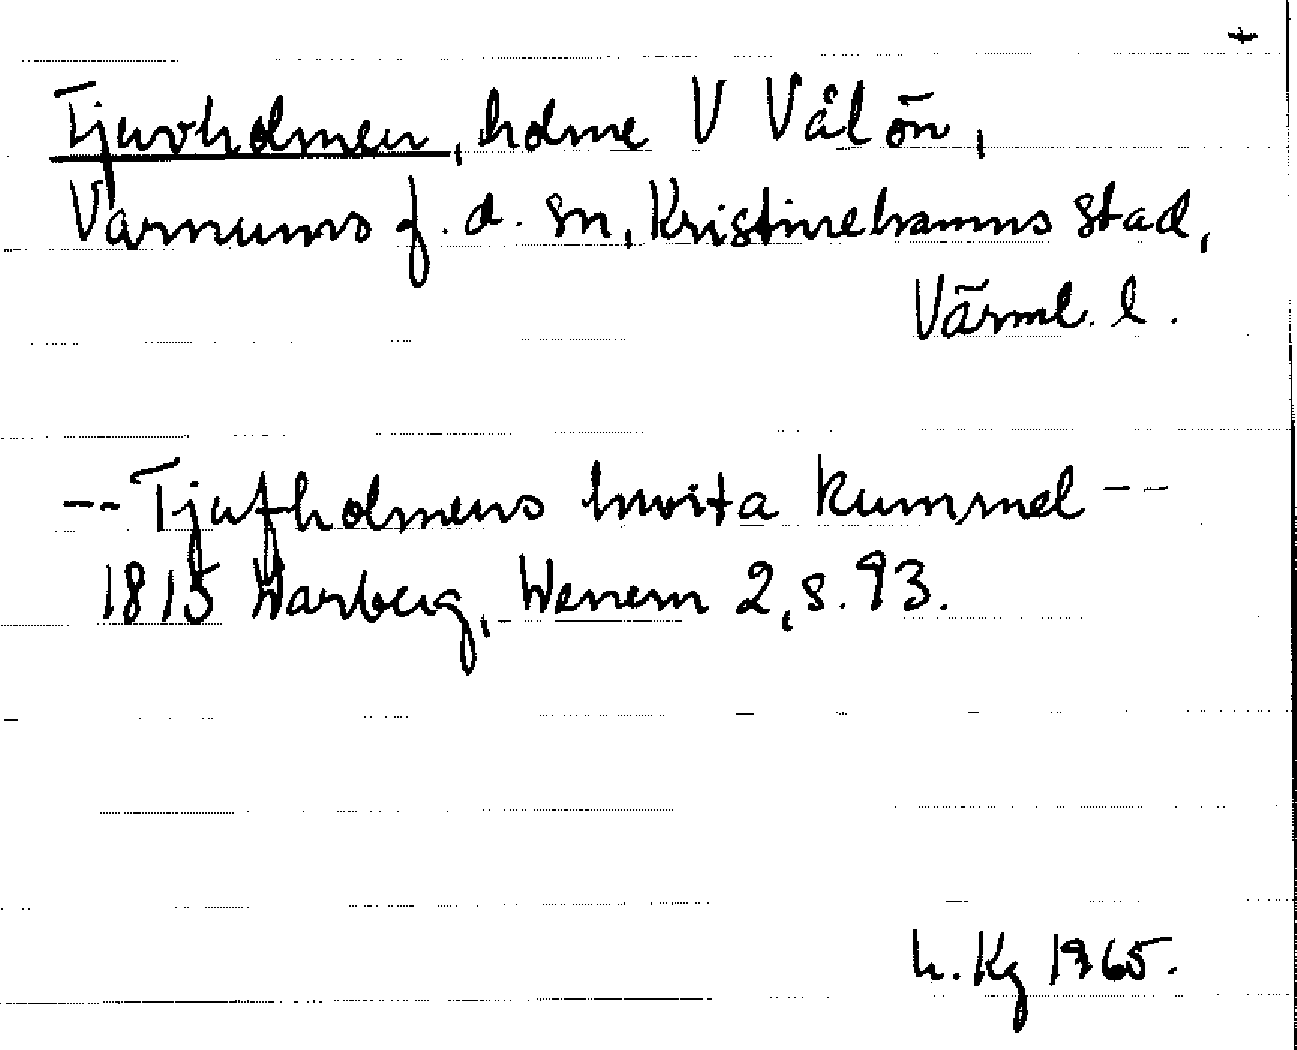 +
Tjuvholmen, holme V Vålön,
Varnums f. d. sn, Kristinehamns stad,
Värml. l.
-- Tjufholmens hvita kummel --
1815 Warberg, Wenern 2, s. 93.
h. Kg 1965.